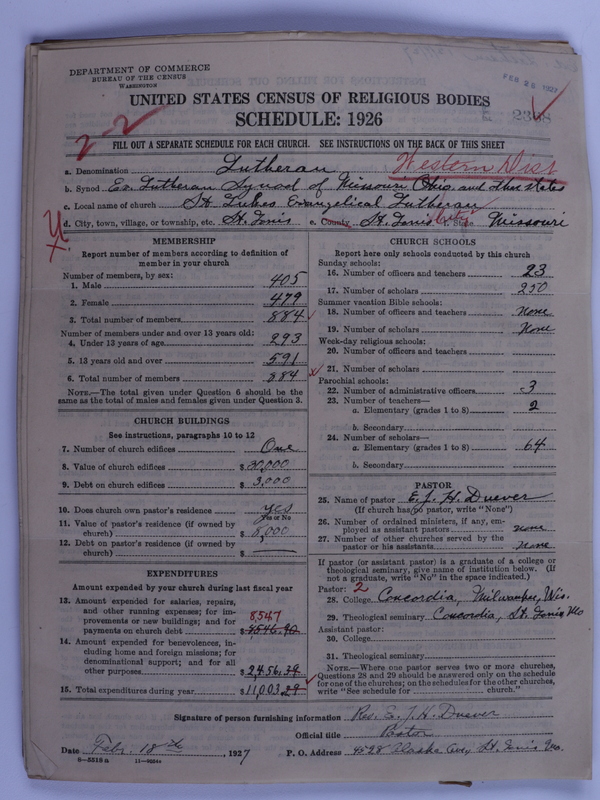 DEPARTMENT OF COMMERCE
BUREAU OF THE CENSUS
WASHINGTON
FEB 26 1927
UNITED STATES CENSUS OF RELIGIOUS BODIES
SCHEDULE: 1926
2-2
FILL OUT A SEPARATE SCHEDULE FOR EACH CHURCH. SEE INSTRUCTIONS ON THE BACK OF THIS SHEET
a. Denomination Lutheran Western Dist
b. Synod Ev. Lutheran Synod of Missouri Ohio and other states
c. Local name of church St. Lukes Evangelical Lutheran
d. City, town, village, or township, etc. St. Louis e. County St. Louis City f. State Missouri
MEMBERSHIP
Report number of members according to definition of
member in your church
Number of members, by sex:
1. Male 405
2. Female 479
3. Total number of members 884
Number of members under and over 13 years old:
4. Under 13 years of age 293
5. 13 years old and over 591
6. Total number of members 884
NOTE.—The total given under Question 6 should be
same as the total of males and females given under Question 3.
CHURCH BUILDINGS
See instructions, paragraphs 10 to 12
7. Number of church edifices One
8. Value of church edifices $30,000
9. Debt on church edifices $3,000
10. Does church own pastor's residence yes
Yes or No
11. Value of pastor's residence (if owned by
church) $8,000
12. Debt on pastor's residence (if owned by
church) $
EXPENDITURES
Amount expended by your church during last fiscal year
13. Amount expended for salaries, repairs,
and other running expenses; for im-
provements or new buildings; and for
payments on church debt 8,547 $8546.90
14. Amount expended for benevolences, in-
cluding home and foreign missions; for
denominational support; and for all
other purposes $2,456.39
15. Total expenditures during year $11,003.29
CHURCH SCHOOLS
Report here only schools conducted by this church
Sunday schools:
16. Number of officers and teachers 23
17. Number of scholars 250
Summer vacation Bible schools:
18. Number of officers and teachers None
19. Number of scholars None
Week-day religious schools:
20. Number of officers and teachers
21. Number of scholars
Parochial schools:
22. Number of administrative officers 3
23. Number of teachers—
a. Elementary (grades 1 to 8) 2
b. Secondary
24. Number of scholars—
a. Elementary (grades 1 to 8) 64
b. Secondary
PASTOR
25. Name of pastor E. J. H. Duever
(If church has no pastor, write "None")
26. Number of ordained ministers, if any, em-
ployed as assistant pastors none
27. Number of other churches served by the
pastor or his assistants None
If pastor (or assistant pastor) is a graduate of a college or
theological seminary, give name of institution below. (If
not a graduate, write "No" in the space indicated.)
Pastor: 2
28. College Concordia, Milwaukee, Wis.
29. Theological seminary Concordia, St. Louis Mo
Assistant pastor:
30. College
31. Theological seminary
NOTE.—Where one pastor serves two or more churches,
Questions 28 and 29 should be answered only on the schedule
for one of the churches; on the schedules for the other churches,
write "See schedule for church."
Signature of person furnishing information Rev. E. J. H. Duever
Official title Pastor
Date Febr. 18th, 1927 P. O. Address 4528 Alaska Ave, St. Louis Mo.
8—5518a 11—9064a